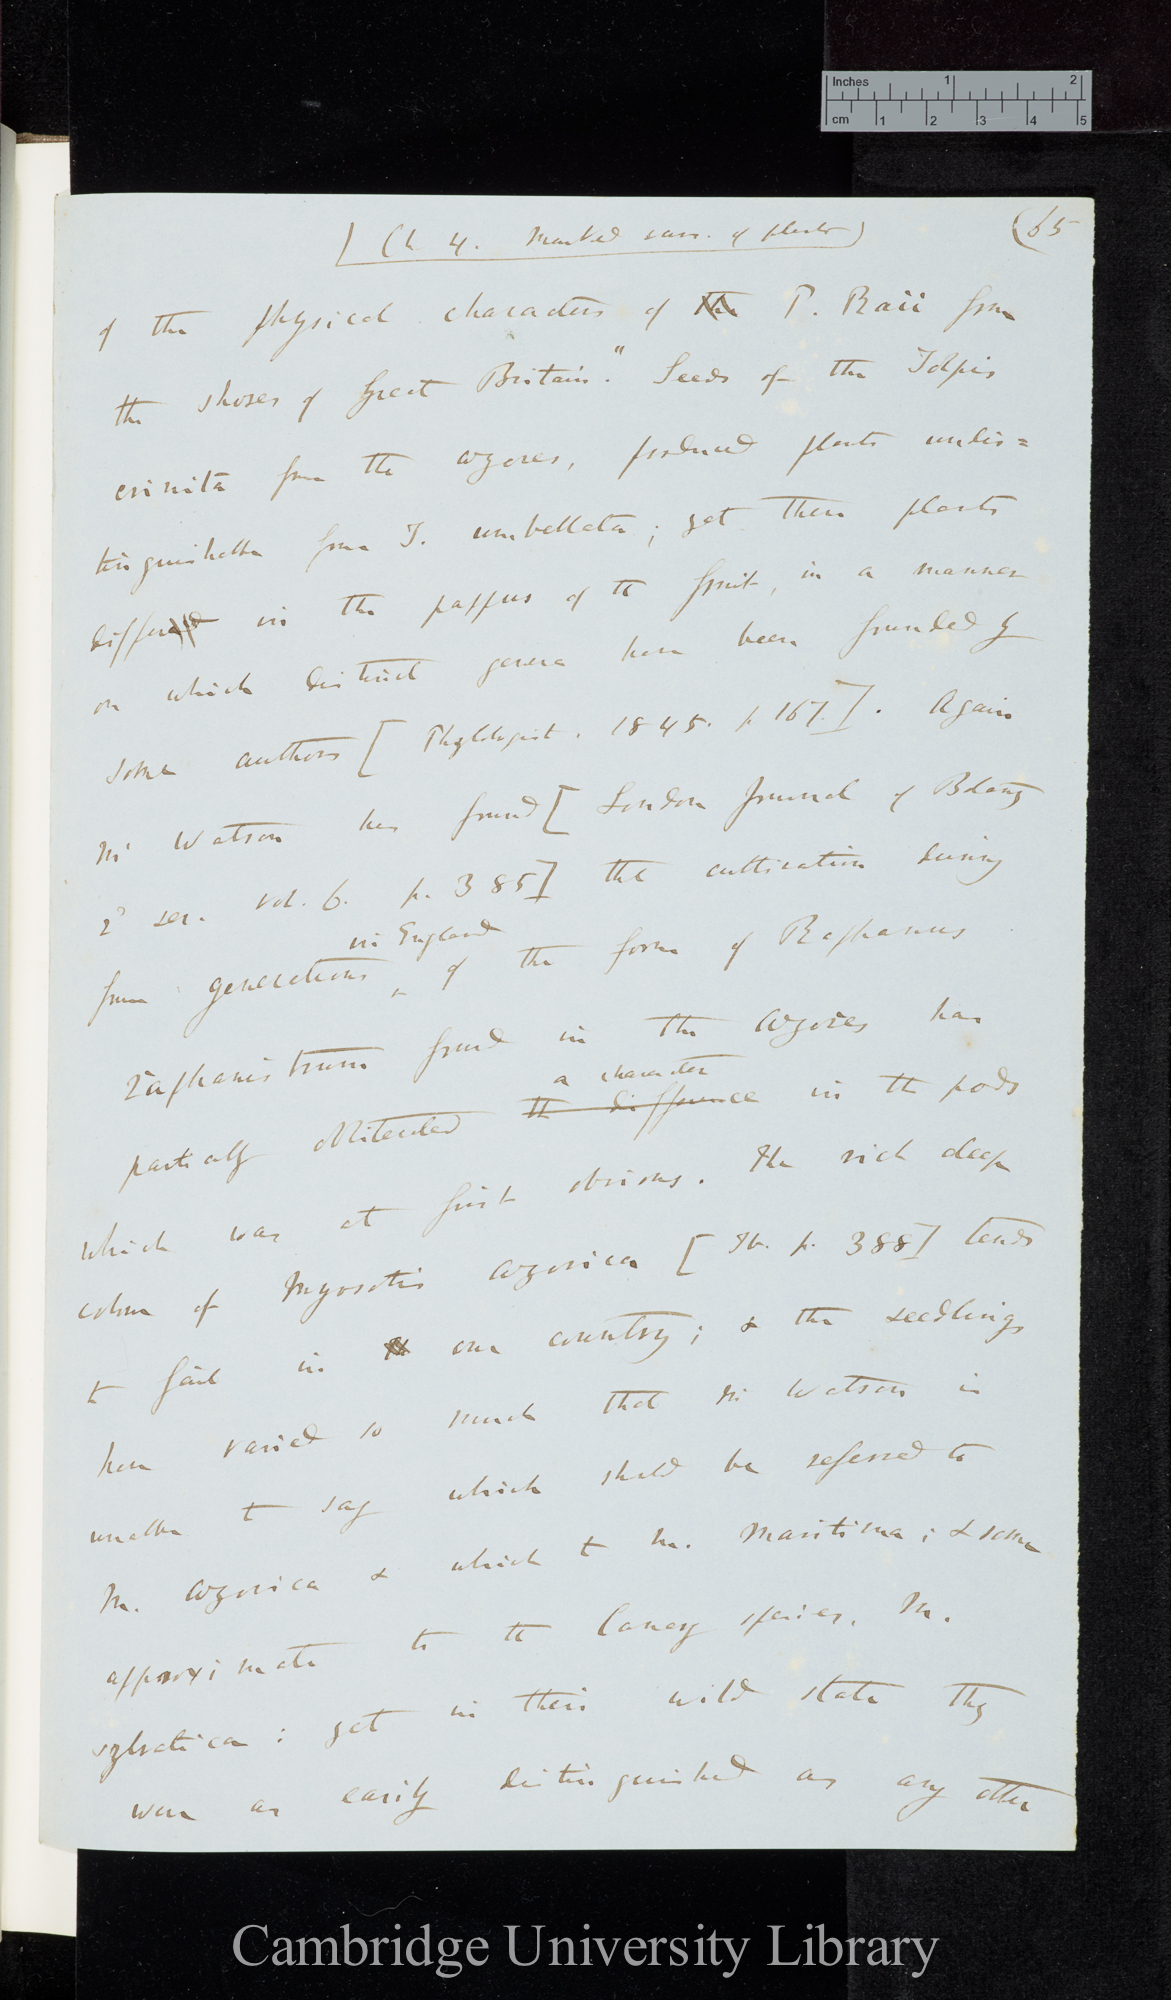 Inches 1 2
cm 1 2 3 4 5
[Ch 4. Marked vars. of plants)
(65
of the physical characters of the P. Raii from
the shores of Great Britain." Seeds of the Tolpis
crinita from the Azores, produced plants undis=
tinguishable from T. umbellata; yet these plants
differed in the pappus of the fruit, in a manner
on which distinct genera have been founded by
some authors [Phytologist. 1845. p 167.]. Again
Mr Watson has found [London Journal of Botany
2d ser. vol. 6. p. 385] that cultivation during
four generations in England of the form of Raphanus
raphanistrum found in the Azores has
partially obliterated the difference a character in the pods
which was at first obvious. The rich deep
colour of Myosotis azorica [Ib. p. 388] tends
to fail in our country; & the seedlings
have varied so much that Mr Watson is
unable to say which should be referred to
M. azorica & which to M. maritima; & some
approximate to the Canary species, M.
sylvatica: yet in their wild state they
were as easily distinguished as any other
Cambridge University Library